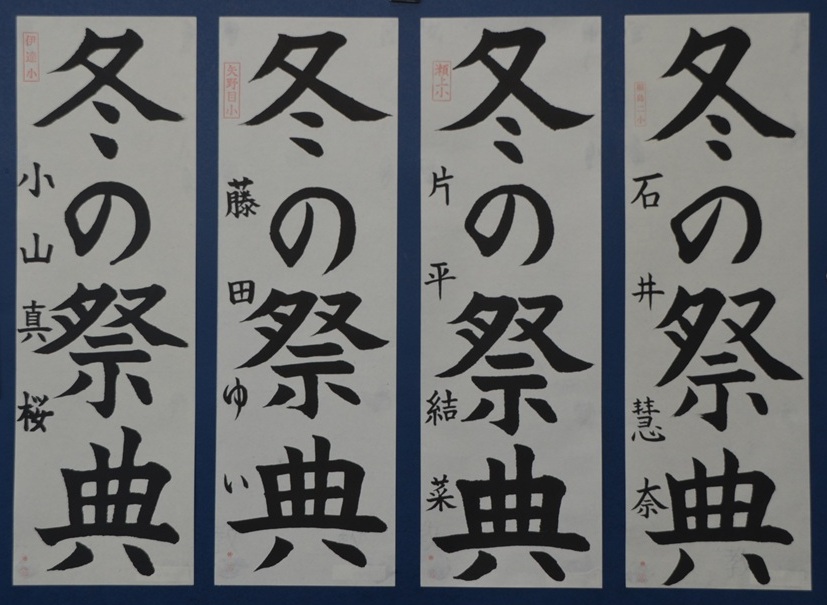 冬の祭典
石井慧奈
冬の祭典
瀬上小
片平結菜
冬の祭典
矢野目小
藤田ゆい
冬の祭典
伊達小
小山真桜